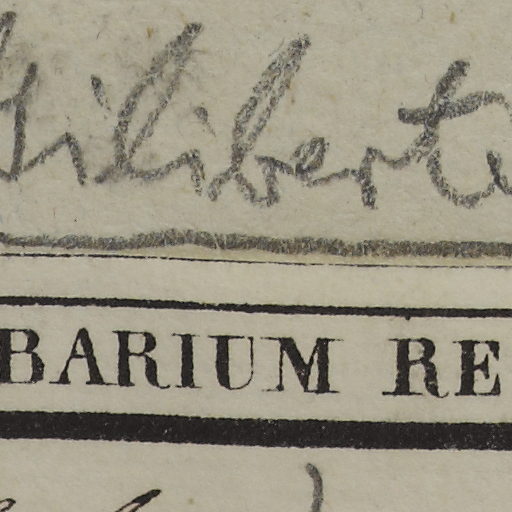 Giliberte
BARIUM RE